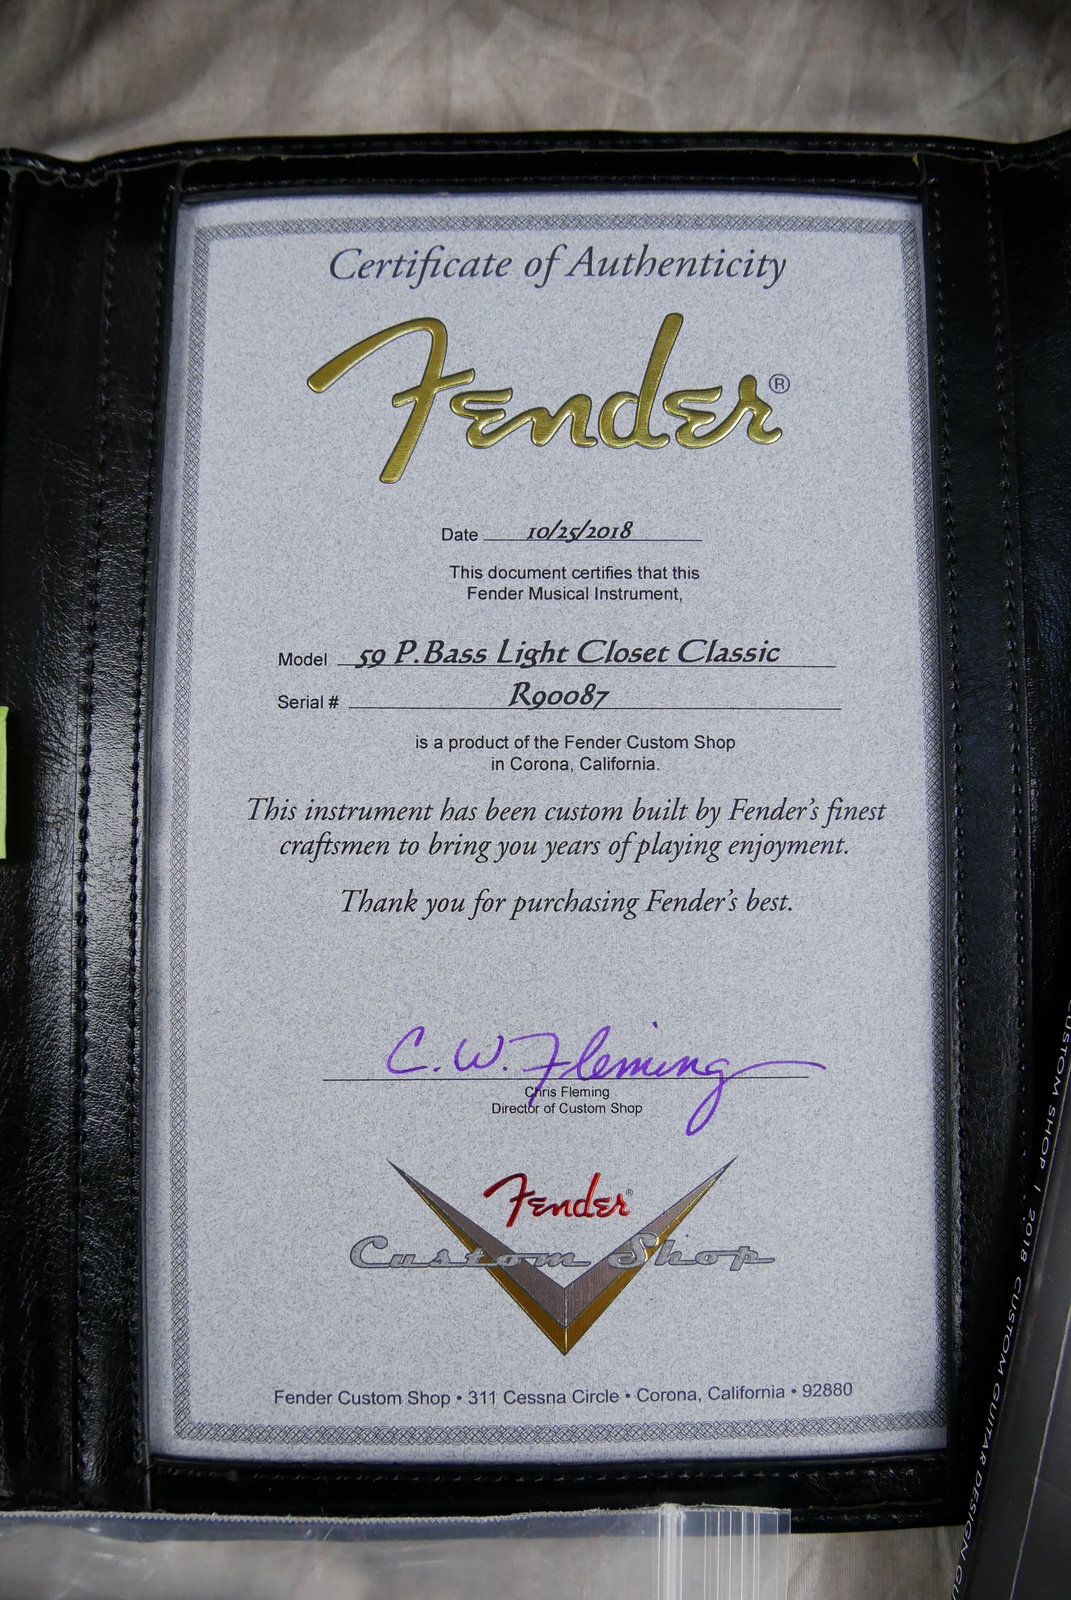 Certificate of Authenticity
Fender®
Date 10/25/2018
This document certifies that this
Fender Musical Instrument,
Model 59 P.Bass Light Closet Classic
Serial # R90087
is a product of the Fender Custom Shop
in Corona, California.
This instrument has been custom built by Fender's finest
craftsmen to bring you years of playing enjoyment.
Thank you for purchasing Fender's best.
C. W. Fleming
Chris Fleming
Director of Custom Shop
Fender®
Custom Shop
Fender Custom Shop • 311 Cessna Circle • Corona, California • 92880
CUSTOM SHOP | 2018 CUSTOM GUITAR DESIGN